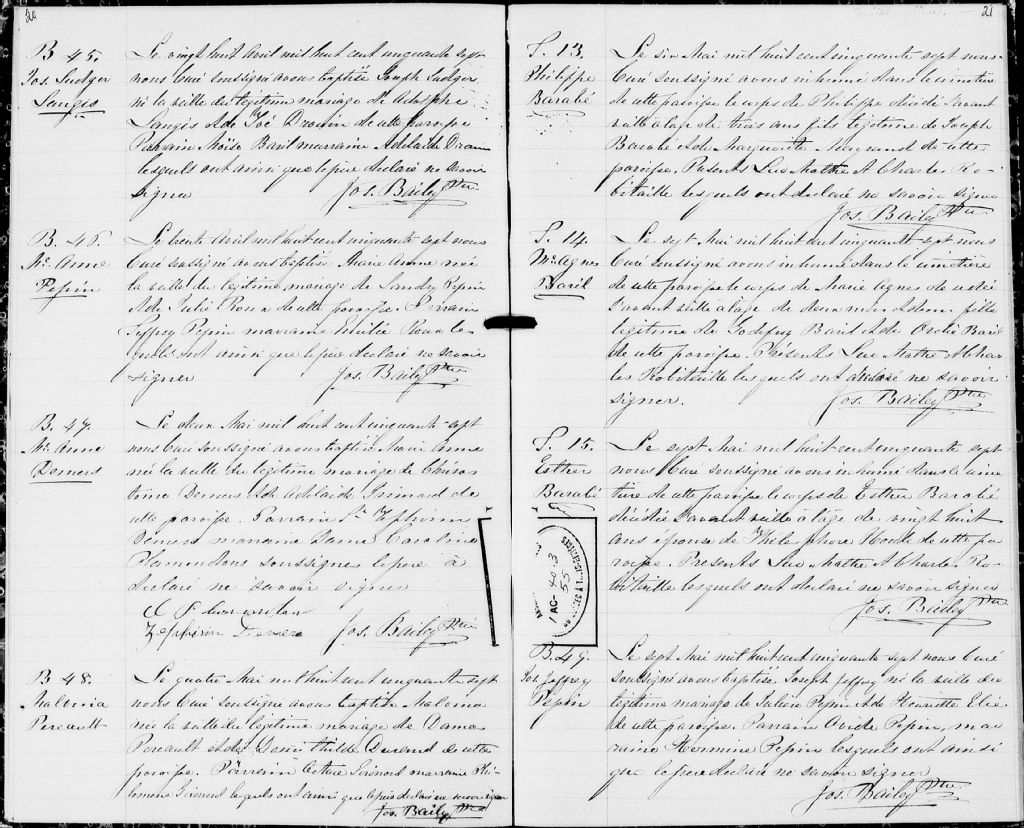 20
B 45.
Jos. Ludger
Langis
Le vingt huit Avril mil huit cent cinquante sept
nous Curé soussigné avons baptisé Joseph Ludger
né la veille du légitime mariage de Adolphe
Langis et de Zoé Drouin de cette paroisse
Parrain Moïse Baril marraine Adelaide Drouin
lesquels ont ainsi que le père déclaré ne savoir
signer Jos. Bailey Ptre
B. 46.
Me. Anne
Pepin
Le trente Avril mil huit cent cinquante sept nous
Curé soussigné avons baptisé Marie Anne née
la veille du légitime mariage de Landry Pepin
et de Julie de cette paroisse. Parrain
Joffrey Pepin marraine Emilie les
quels ont ainsi que le père déclaré ne savoir
signer Jos. Bailey Ptre
B. 47.
Me. Anne
Demers
Le deux Mai mil huit cent cinquante sept
nous Curé soussigné avons baptisé Marie Anne
né la veille du légitime mariage de Chrisos
tome Demers et de Adelaide Grimard de
cette paroisse. Parrain Zephirin
Demers marraine Dame Caroline
Plamondon soussignés le père a
déclaré ne savoir signer
C P
Zephirin Demers Jos. Bailey Ptre
B 48.
Malvina
Percault
Le quatre Mai mil huit cent cinquante sept
nous Curé soussigné avons baptisé Malvina
née la veille du légitime mariage de Damas
Percault et de Domithilde Durand de cette
paroisse. Parrain Arthur Grimard marraine Phi-
lomene Grimard lesquels ont ainsi que le père déclaré ne savoir signer
Jos. Bailey Ptre
21
S. 13.
Philippe
Barabé
Le six Mai mil huit cent cinquante sept nous
Curé soussigné avons inhumé dans le cimetière
de cette paroisse le corps de Philippe décédé l'avant
veille à l'age de trois ans fils légitime de Joseph
Barabé et de Marguerite Magnand de cette
paroisse. Présents Luc Mathe & Charles Ro-
bitaille lesquels ont déclaré ne savoir signer
Jos. Bailey Ptre
S. 14.
Me. Agnes
Baril
Le sept Mai mil huit cent cinquante sept nous
Curé soussigné avons inhumé dans le cimetière
de cette paroisse le corps de Marie Agnes décédée
l'avant veille à l'age de deux mois et demi fille
légitime de Godefroy Baril et de Baril
de cette paroisse. Présents Luc Mathe & Char
les Robitaille lesquels ont déclaré ne savoir
signer. Jos. Bailey Ptre
S. 15.
Esther
Barabé
Le sept Mai mil huit cent cinquante sept
nous Curé soussigné avons inhumé dans le cime
tière de cette paroisse le corps de Esther Barabé
décédée l'avant veille à l'age de vingt huit
ans épouse de Théles phore Houle de cette pa
roisse. Présents Luc Mathe & Charles Ro-
bitaille lesquels ont déclaré ne savoir signer
Jos. Bailey Ptre
1 AC- 40-3
55
B. 49.
Jos. Joffrey
Pepin
Le sept Mai mil huit cent cinquante sept nous Curé
soussigné avons baptisé Joseph Joffrey né la veille du
légitime mariage de Julien Pepin et de Henriette Elie
de cette paroisse. Parrain Ovide Pepin, mar
raine Hermine Pepin lesquels ont ainsi
que le père déclaré ne savoir signer
Jos. Bailey Ptre